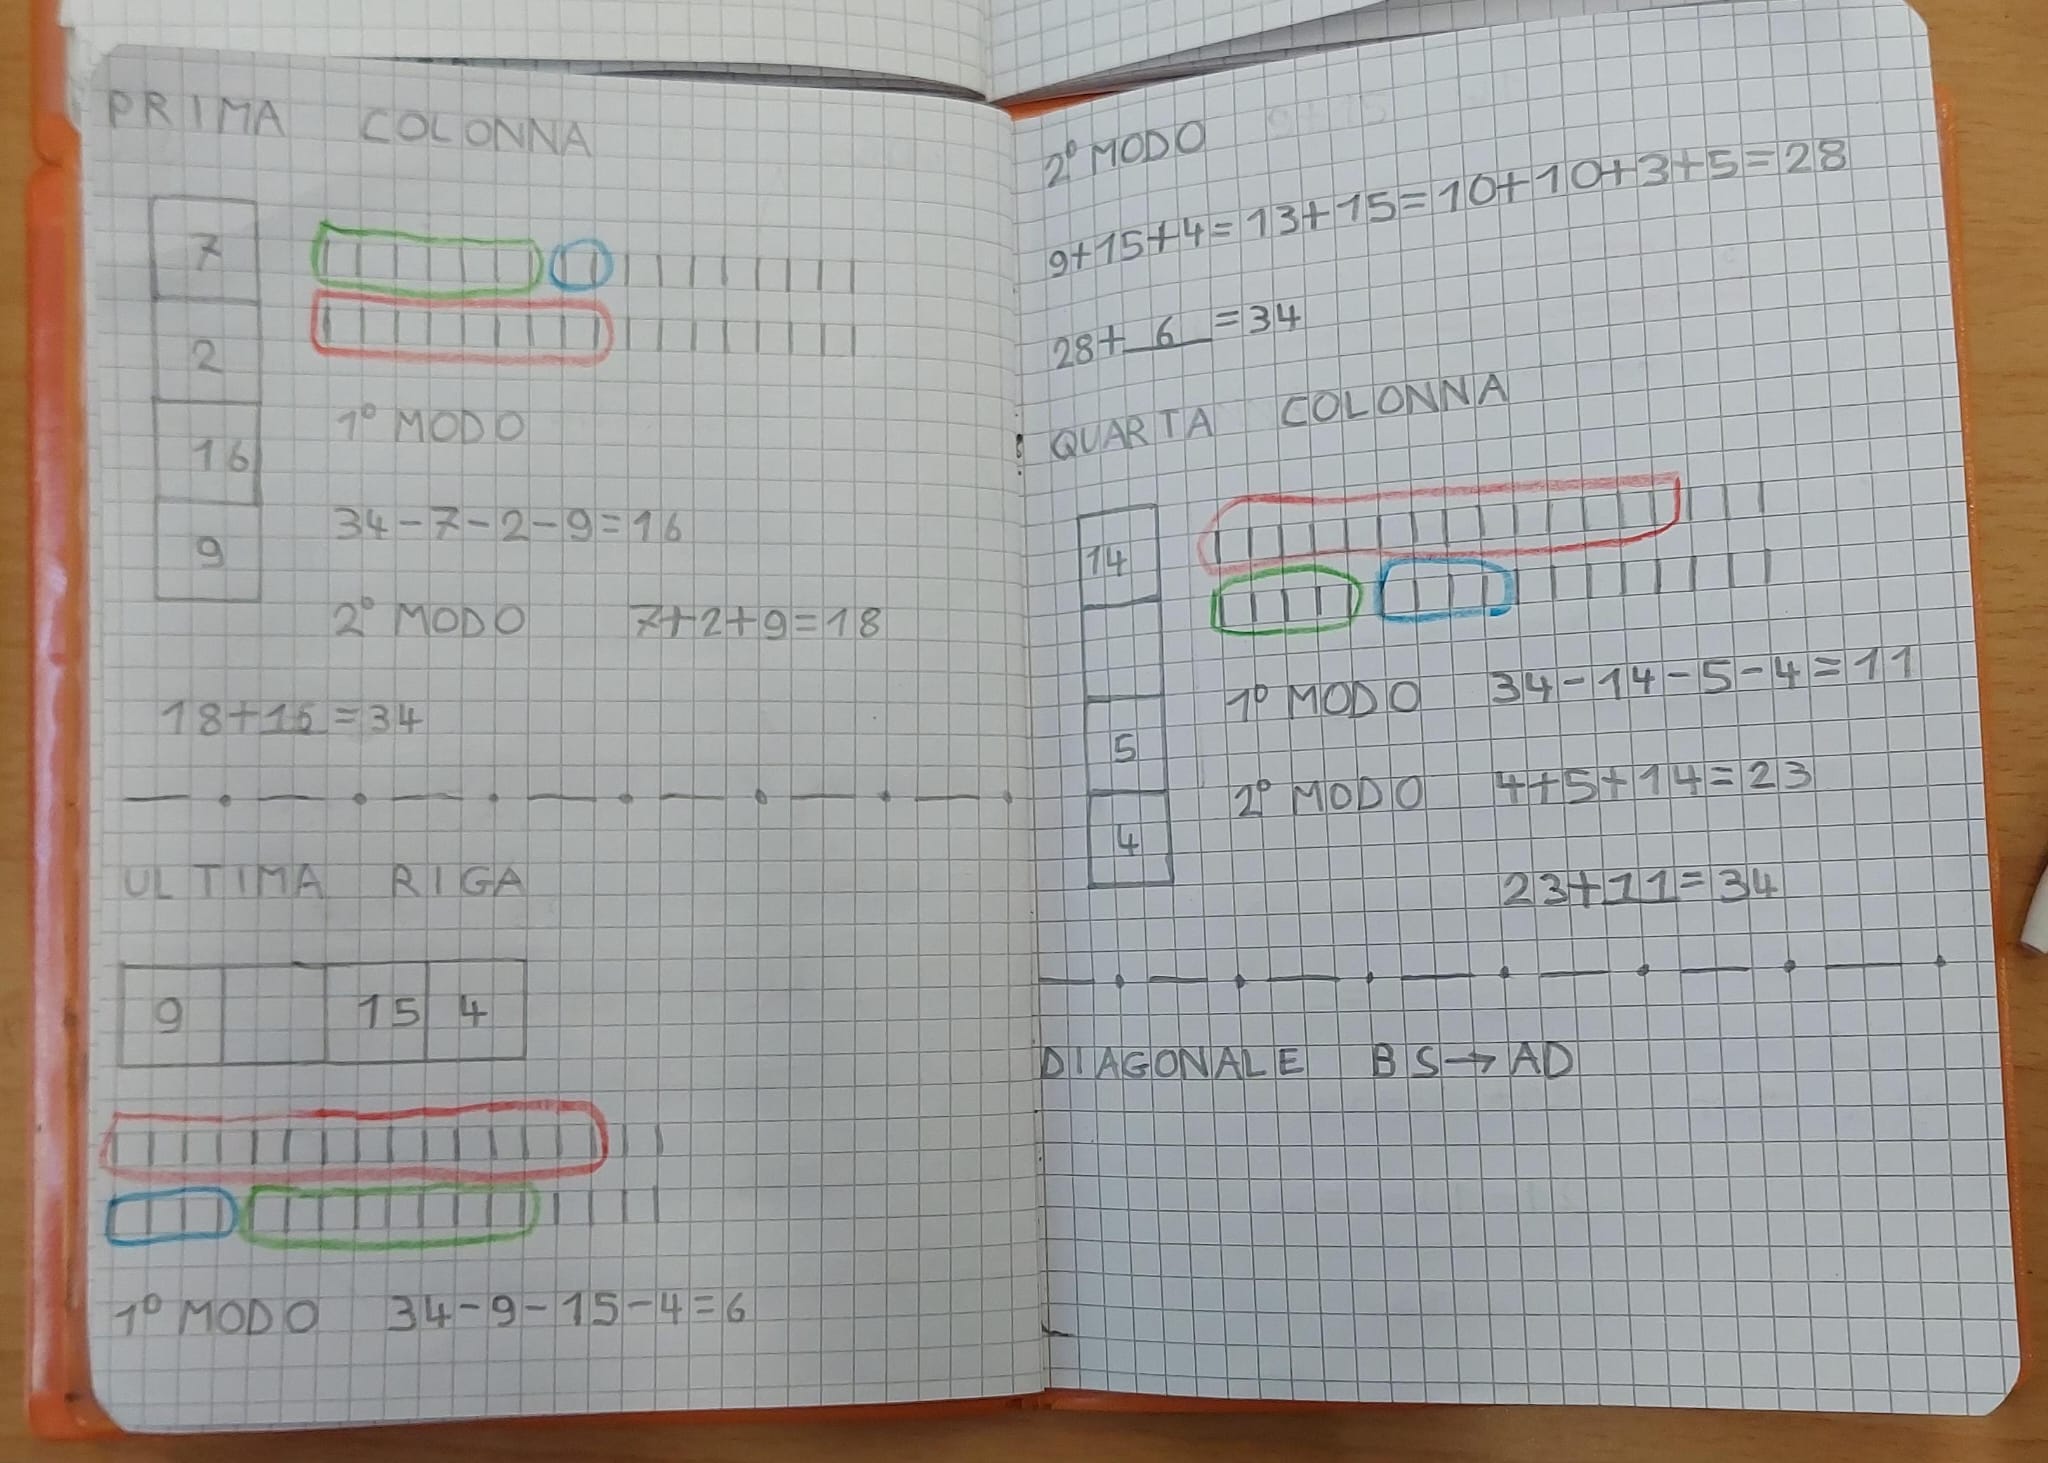 PRIMA COLONNA
7
2
16
9
1° MODO
34-7-2-9=16
2° MODO 7+2+9=18
18+16=34
ULTIMA RIGA
9 15 4
1° MODO 34-9-15-4=6
2° MODO
9+15+4=13+15=10+10+3+5=28
28+6=34
QUARTA COLONNA
14
5
4
1° MODO 34-14-5-4=11
2° MODO 4+5+14=23
23+11=34
DIAGONALE BS→AD